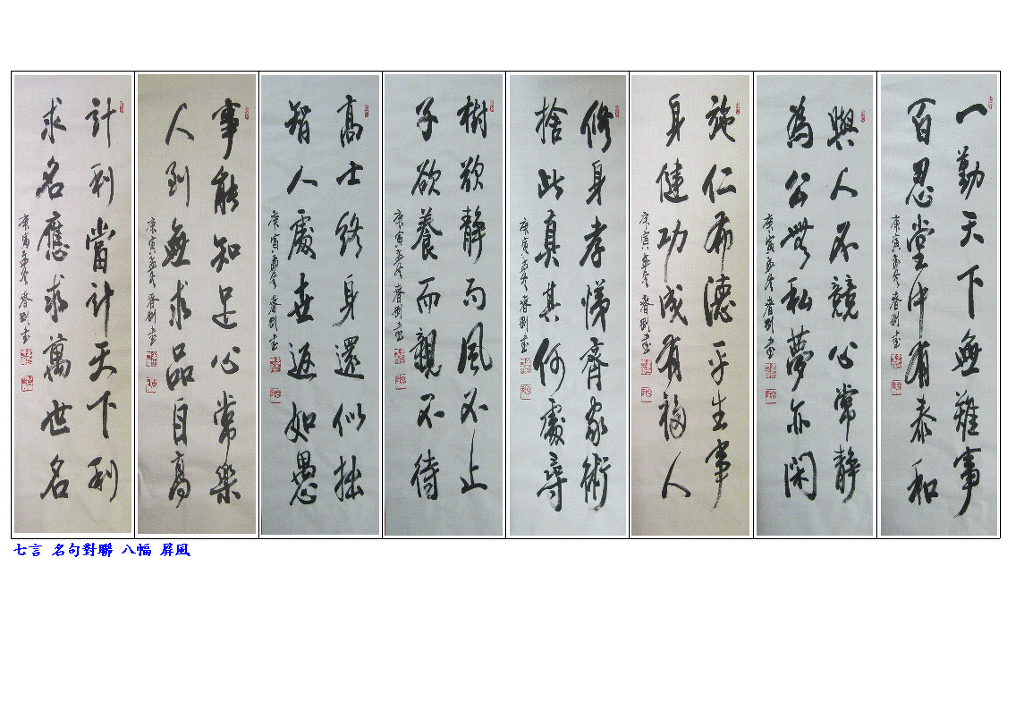 一勤天下無難事
百忍堂中有泰和
庚寅孟冬
與人不競心常靜
為公無私夢亦閑
庚寅孟冬
施仁布德平生事
身健功成有福人
庚寅孟冬
修身孝悌齊家術
捨此真其何處尋
庚寅孟冬
樹欲靜而風不止
子欲養而親不待
庚寅孟冬
高士終身還似拙
智人處世返如愚
庚寅孟冬
事能知足心常樂
人到無求品自高
庚寅孟冬
計利當計天下利
求名應求萬世名
庚寅孟冬
七言 名句對聯 八幅 屛風